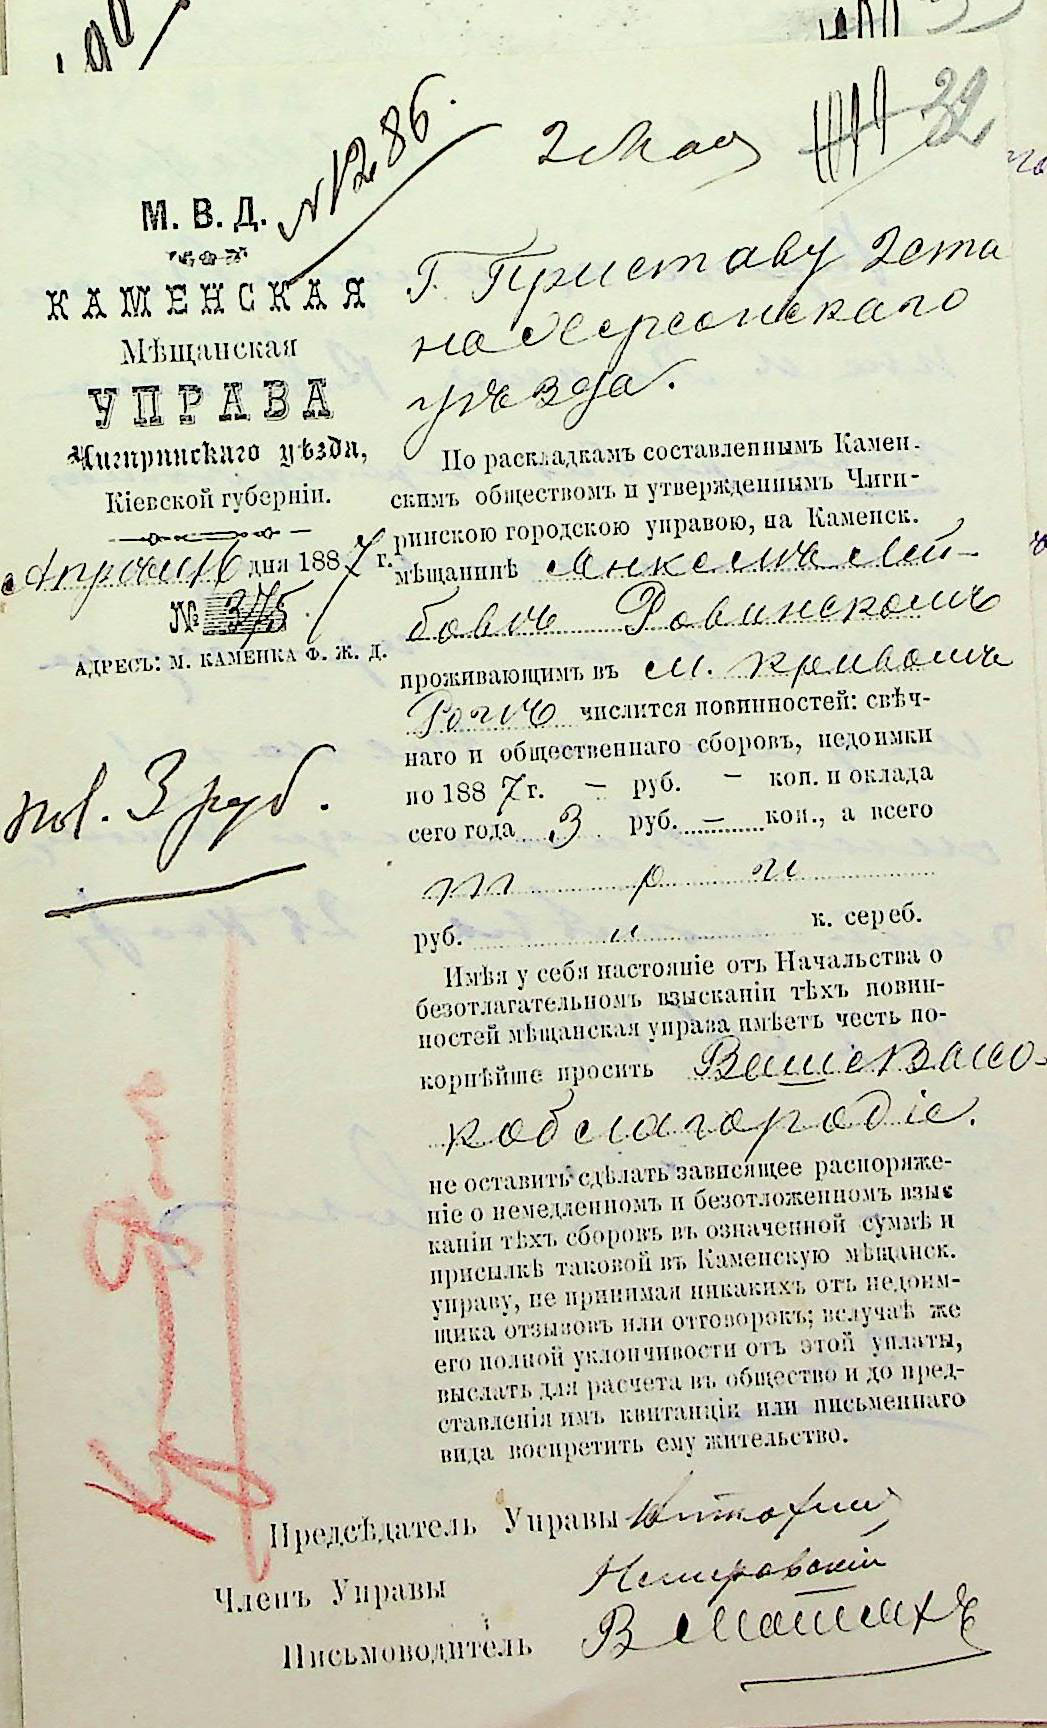 № 1286.
2 Мая
32
М. В. Д.
КАМЕНСКАЯ
Мѣщанская
УПРАВА
Чигиринскаго уѣзда,
Кіевской губерніи.
Апрѣля 16 дня 1887 г.
№ 375.
АДРЕСЪ: М. КАМЕНКА Ф. Ж. Д.
Г. Приставу 2 ста
на Херсонскаго
уѣзда.
По раскладкамъ составленнымъ Камен-
скимъ обществомъ и утвержденнымъ Чиги-
ринскою городскою управою, на Каменск.
мѣщанинѣ Анкелѣ Лей-
бовѣ Ровинскомъ
проживающимъ въ м. Кривомъ
Рогѣ числится повинностей: свѣч-
наго и общественнаго сборовъ, недоимки
по 1887 г. — руб. — коп. и оклада
сего года 3 руб. — коп., а всего
три
руб. и к. сереб.
пов. 3 руб.
Имѣя у себя настояніе отъ Начальства о
безотлагательномъ взысканіи тѣхъ повин-
ностей мѣщанская управа имѣетъ честь по-
корнѣйше просить Ваше Высо-
коблагородіе.
не оставить сдѣлать зависящее распоряже-
ніе о немедленномъ и безотложенномъ взыс
каніи тѣхъ сборовъ въ означенной суммѣ и
присылкѣ таковой въ Каменскую мѣщанск.
управу, не принимая никакихъ отъ недоим-
щика отзывовъ или отговорокъ; вслучаѣ же
его полной уклончивости отъ этой уплаты,
выслать для расчета въ общество и до пред-
ставленія имъ квитанціи или письменнаго
вида воспретить ему жительство.
Предсѣдатель Управы
Членъ Управы Немировскій
Письмоводитель В